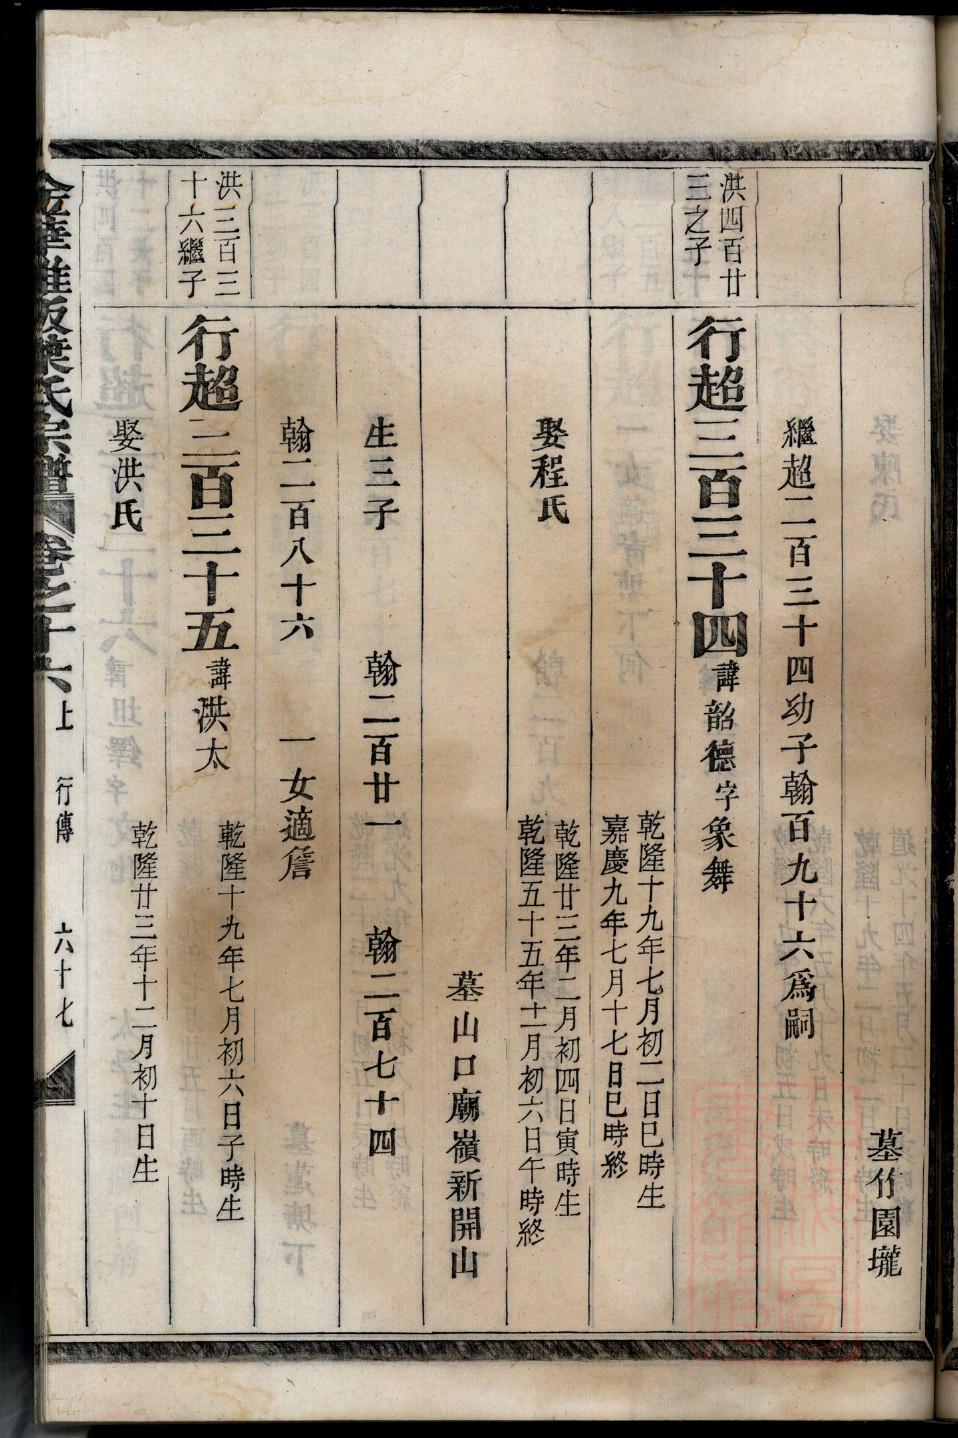 墓竹園壠
繼超二百三十四幼子翰百九十六爲嗣
洪四百廿
三之子
行超三百三十四諱韶德字象舞
乾隆十九年七月初二日巳時生
嘉慶九年七月十七日巳時終
娶程氏
乾隆廿三年二月初四日寅時生
乾隆五十五年十一月初六日午時終
墓山口廟嶺新開山
生三子 翰二百廿一 翰二百七十四
翰二百八十六 一女適詹
洪三百三
十六繼子
行超三百三十五諱洪太
乾隆十九年七月初六日子時生
娶洪氏
乾隆廿三年十二月初十日生
葉氏宗譜 卷之十六上 行傳 六十七